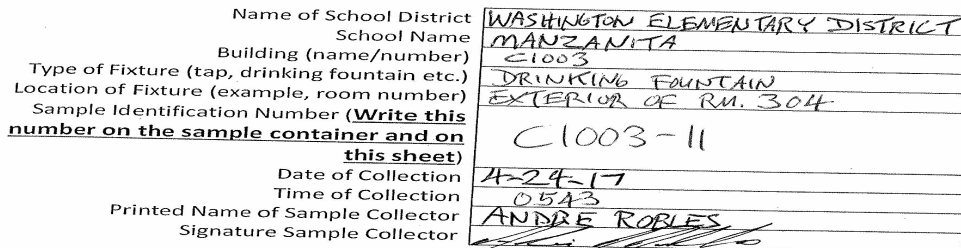 Name of School District WASHINGTON ELEMENTARY DISTRICT
School Name MANZANITA
Building (name/number) C1003
Type of Fixture (tap, drinking fountain etc.) DRINKING FOUNTAIN
Location of Fixture (example, room number) EXTERIOR OF RM. 304
Sample Identification Number (Write this
number on the sample container and on C1003-11
this sheet)
Date of Collection 4-24-17
Time of Collection 0543
Printed Name of Sample Collector ANDRE ROBLES
Signature Sample Collector